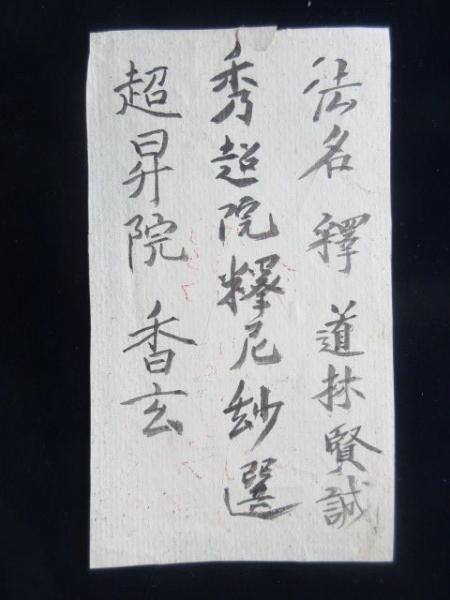 法名 釋 道 賢誠
秀超院釋尼玅選
超昇院 香玄